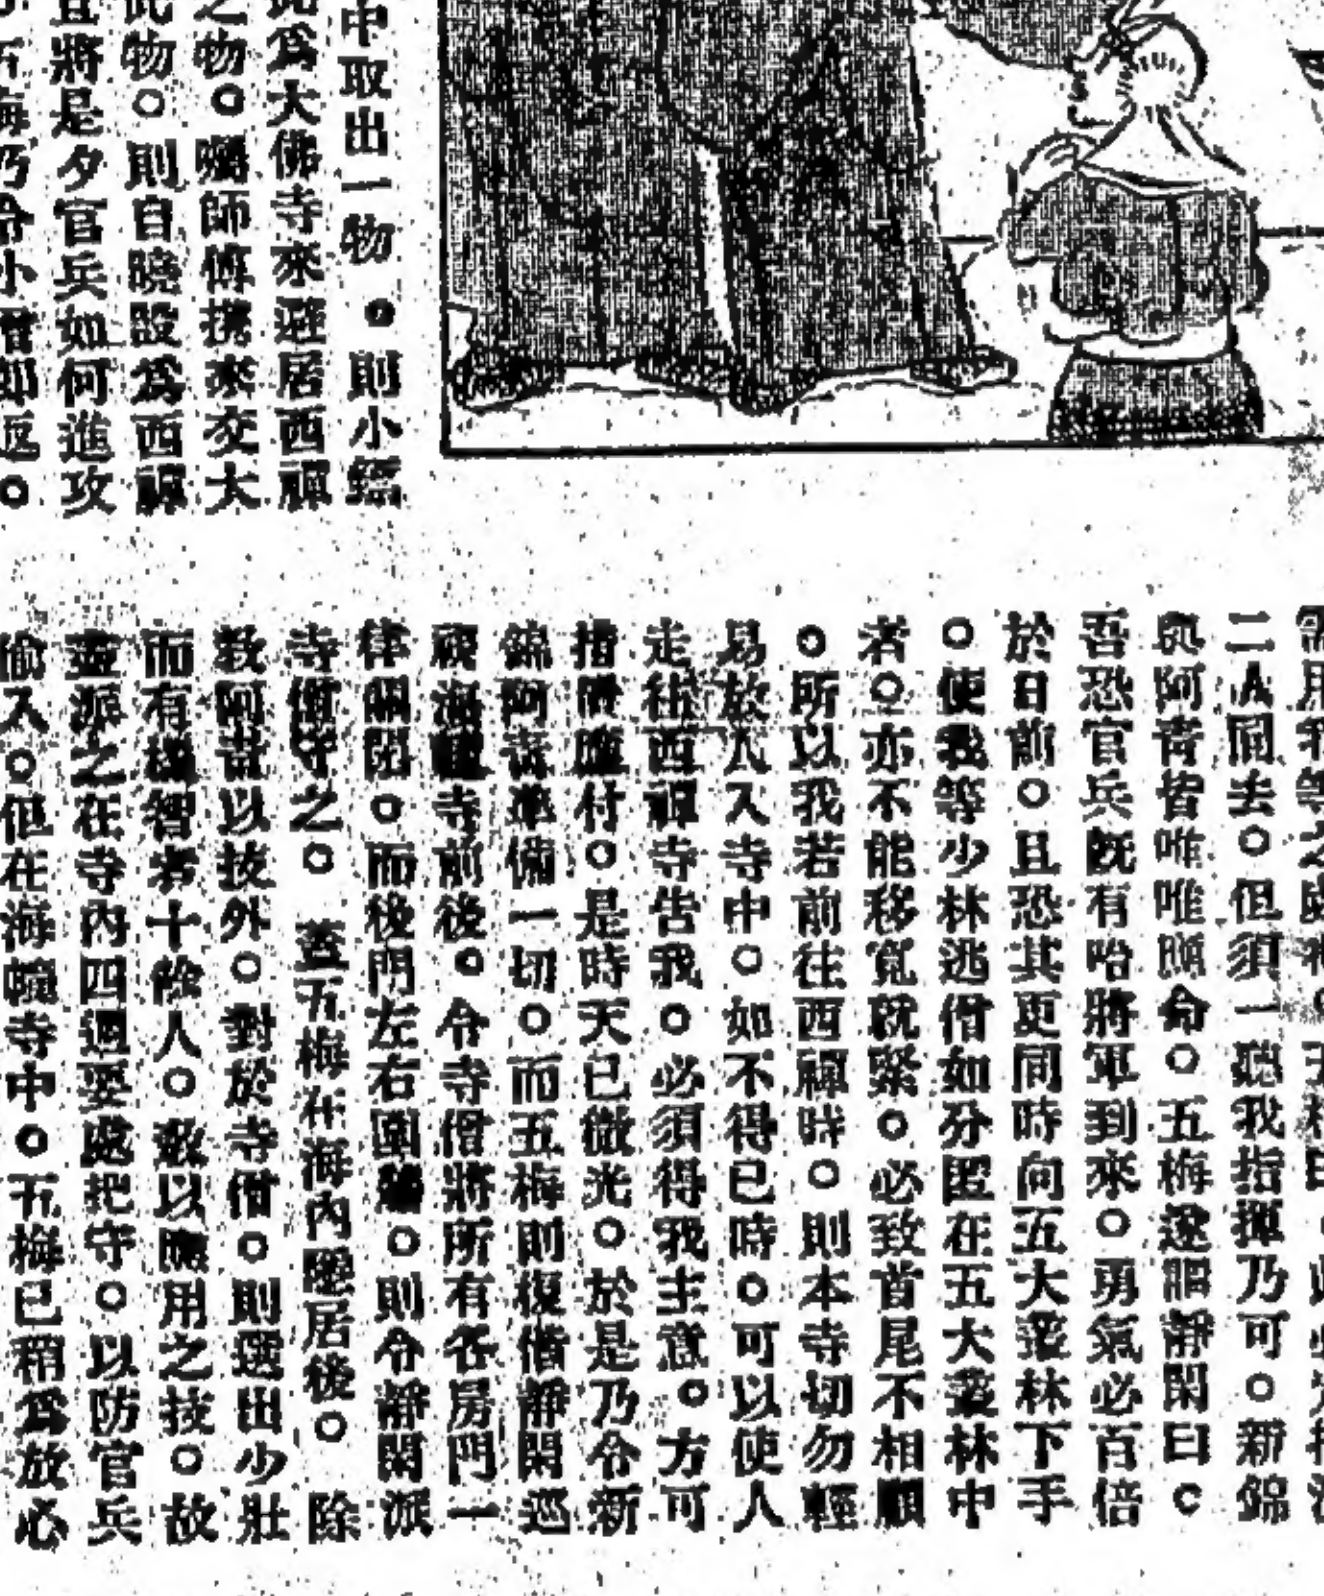 中取出一物。則小
爲大佛寺來避居西禪
之物。囑師傅携來交大
此物。則自曉設爲西禪
且將是夕官兵如何進攻
五梅乃令小僧卽返。
二人同去。但須一聽我指揮乃可。新錦
與阿青皆唯唯願命。五梅遂謂靜閑曰。
吾恐官兵旣有哈將軍到來。勇氣必百倍
於日前。且恐其更同時向五大叢林下手
。使我等少林逃僧如分匿在五大叢林中
者。亦不能移寬就緊。必致首尾不相顧
。所以我若前往西禪時。則本寺切勿輕
易放人入寺中。如不得已時。可以使人
走往西禪寺告我。必須得我主意。方可
措置應付。是時天已微光。於是乃令新
錦阿青準備一切。而五梅則復偕靜閑巡
視海幢寺前後。令寺僧將所有各房門一
律關閉。而後門左右圍牆。則令靜閑派
寺僧守之。蓋五梅在海內隱居後。除
敎阿青以技外。對於寺僧。則選出少壯
而有機智者十餘人。敎以應用之技。故
盡派之在寺內四週要處把守。以防官兵
偷入。但在海幢寺中。五梅已稍爲放心